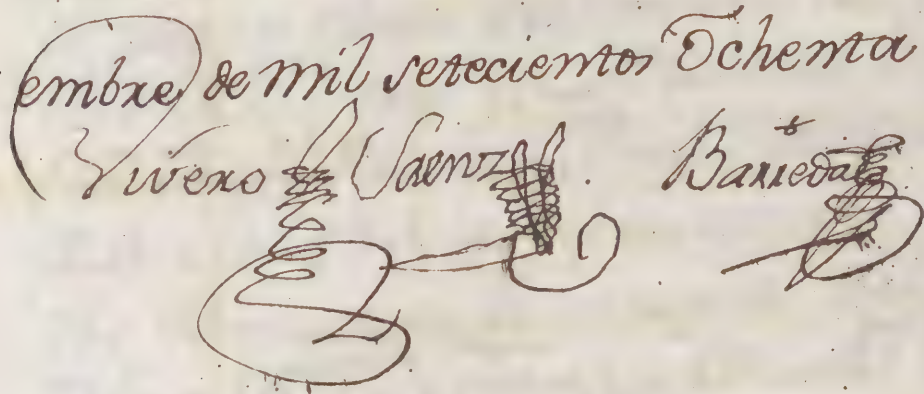 embre de mil setecientos Ochenta
Vivero Saenz Barreda